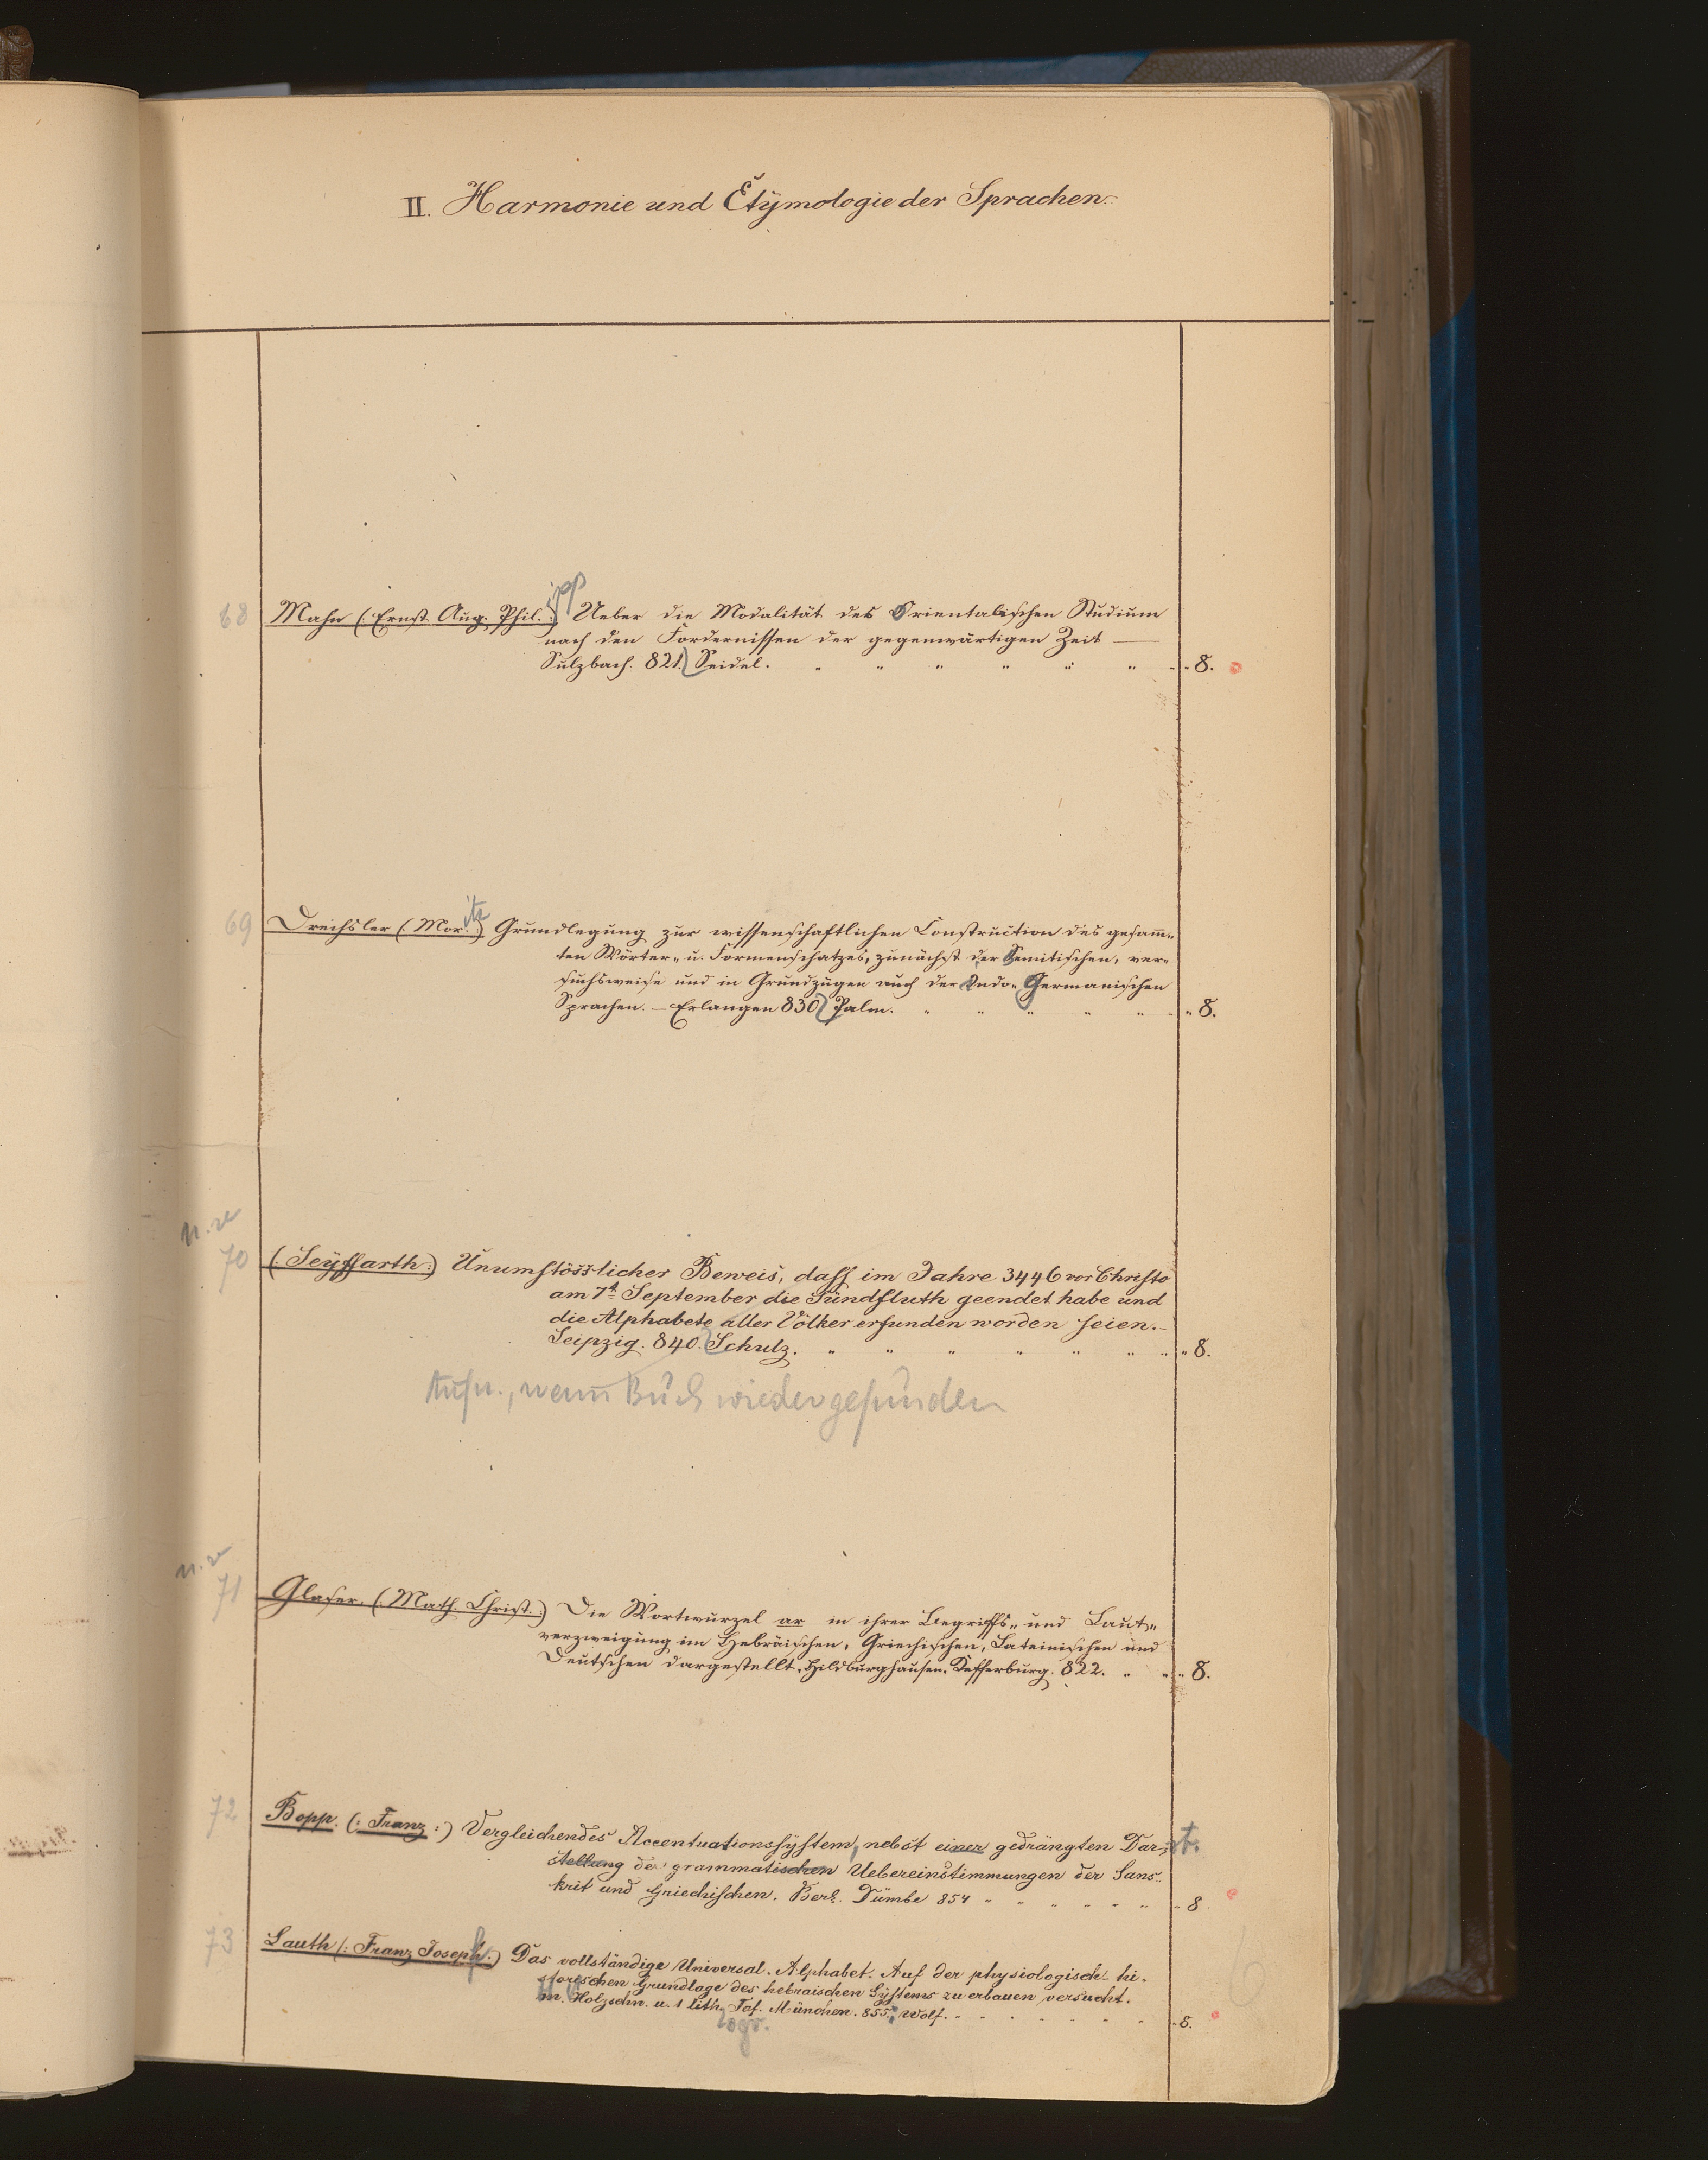 II. Harmonie und Etymologie der Sprachen.
68 Mahn (: Ernst Aug. Phil. :) ipp Ueber die Modalität des Orientalischen Studium
nach den Fordernissen der gegenwärtigen Zeit —
Sulzbach. 821. Seidel. " " " " " " " 8.
69 Drechsler (: Mor. :) itz Grundlegung zur wissenschaftlichen Construction des gesamm-
ten Wörter- u. Formenschatzes, zunächst der Semitischen, ver-
suchsweise und in Grundzügen auch der Indo-Germanischen
Sprachen. — Erlangen 830 Palm. " " " " " " 8.
70 (: Seyffarth :) Unumstösslicher Beweis, dass im Jahre 3446 vor Christo
am 7t September die Sündfluth geendet habe und
die Alphabete aller Völker erfunden worden seien. —
Leipzig. 840. Schulz. " " " " " " " 8.
Aufn., wenn Buch wiedergefunden
71 Glaser. (: Math. Christ. :) Die Wortwurzel ar in ihrer Begriffs- und Laut-
verzweigung im Hebräischen, Griechischen, Lateinischen und
Deutschen dargestellt. Hildburghausen. Kesselring. 822. " " " 8.
72 Bopp. (: Franz :) Vergleichendes Accentuationssystem, nebst einer gedrängten Dar-
stellung der grammatischen Uebereinstimmungen der Sans-
krit und Griechischen. Berl. Dümbe 854 " " " " " " " 8
73 Lauth (: Franz Joseph :) Das vollständige Universal-Alphabet. Auf der physiologisch-hi-
storischen Grundlage des hebraischen Systems zu erbauen versucht.
m. Holzschn. u. 1 lith. Taf. München. 855. Wolf. " " " " " " " 8.